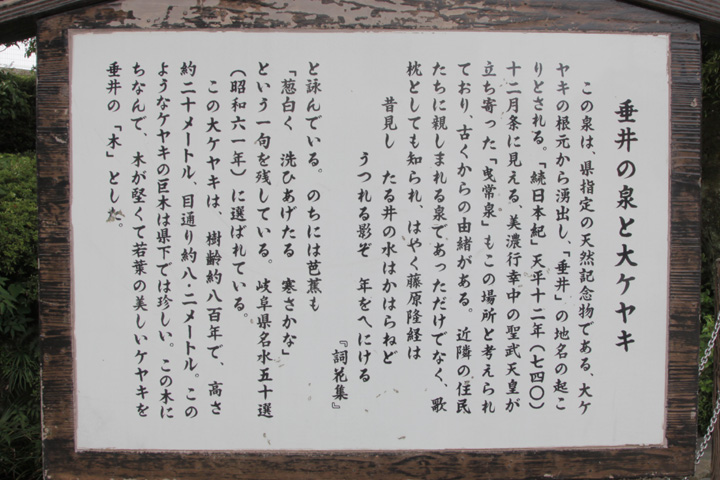 垂井の泉と大ケヤキ
この泉は、県指定の天然記念物である、大ケ
ヤキの根元から湧出し、「垂井」の地名の起こ
りとされる。「続日本紀」天平十二年（七四〇）
十二月条に見える、美濃行幸中の聖武天皇が
立ち寄った「曳常泉」もこの場所と考えられ
ており、古くからの由緒がある。近隣の住民
たちに親しまれる泉であっただけでなく、歌
枕としても知られ、はやく藤原隆経は
昔見し たる井の水はかはらねど
うつれる影ぞ 年をへにける
『詞花集』
と詠んでいる。のちには芭蕉も
「葱白く 洗ひあげたる 寒さかな」
という一句を残している。岐阜県名水五十選
（昭和六一年）に選ばれている。
この大ケヤキは、樹齢約八百年で、高さ
約二十メートル、目通り約八・二メートル。この
ようなケヤキの巨木は県下では珍しい。この木に
ちなんで、木が堅くて若葉の美しいケヤキを
垂井の「木」とした。